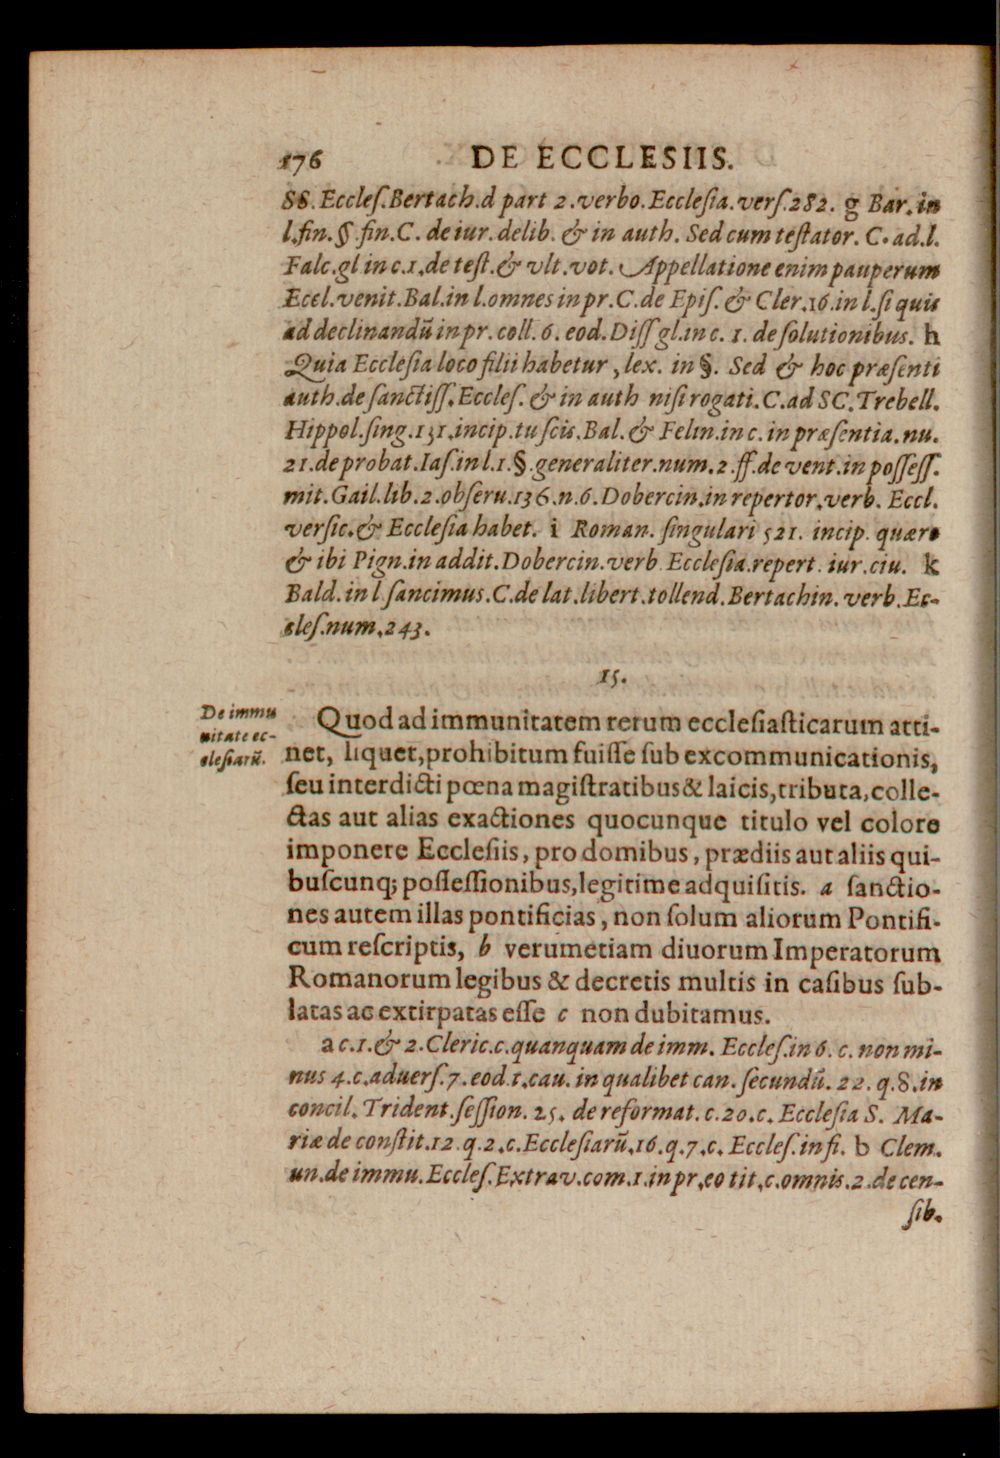 176 DE ECCLESIIS.
SS. Eccleſ. Bertach. d part 2. verbo. Eccleſia. verſ. 282. g Bar. in
l. fin. §. fin. C. de iur. delib. & in auth. Sed cum teſtator. C. ad. l.
Falc. gl in c. 1. de teſt. & vlt. vot. Appellatione enim pauperum
Eccl. venit. Bal. in l. omnes in pr. C. de Epiſ. & Cler. 16. in l. ſi quis
ad declinandū in pr. coll. 6. eod. Diſſ gl. in c. 1. de ſolutionibus. h
Quia Eccleſia loco filii habetur, lex. in §. Sed & hoc præſenti
auth. de ſanctiſſ. Eccleſ. & in auth niſi rogati. C. ad SC. Trebell.
Hippol. ſing. 131. incip. tu ſcis. Bal. & Felin. in c. in præſentia. nu.
21. de probat. Iaſ. in l. 1. §. generaliter. num. 2. ff. de vent. in poſſeſſ.
mit. Gail. lib. 2. obſeru. 136. n. 6. Dobercin. in repertor. verb. Eccl.
verſic. & Eccleſia habet. i Roman. ſingulari 521. incip. quæro
& ibi Pign. in addit. Dobercin. verb. Eccleſia. repert. iur. ciu. k
Bald. in l ſancimus. C. de lat. libert. tollend. Bertachin. verb. Ec-
cleſ. num. 243.
15.
De immu
nitate ec-
cleſiarū.
Quod ad immunitatem rerum eccleſiaſticarum atti-
net, liquet, prohibitum fuiſſe ſub excommunicationis,
ſeu interdicti pœna magiſtratibus & laicis, tributa, colle-
ctas aut alias exactiones quocunque titulo vel colore
imponere Eccleſiis, pro domibus, prædiis aut aliis qui-
buſcunq; poſſeſſionibus, legitime adquiſitis. a ſanctio-
nes autem illas pontificias, non ſolum aliorum Pontifi-
cum reſcriptis, b verumetiam diuorum Imperatorum
Romanorum legibus & decretis multis in caſibus ſub-
latas ac extirpatas eſſe c non dubitamus.
a c. 1. & 2. Cleric. c. quanquam de imm. Eccleſ. in 6. c. non mi-
nus 4. c. aduerſ. 7. eod. 1. cau. in qualibet can. ſecundū. 22. q. 8. in
concil. Trident. ſeſſion. 25. de reformat. c. 20. c. Eccleſia S. Ma-
riæ de conſtit. 12. q. 2. c. Eccleſiarū. 16. q. 7. c. Eccleſ. in fi. b Clem.
un. de immu. Eccleſ. Extrav. com. 1. in pr. eo tit. c. omnis. 2. de cen-
ſib.